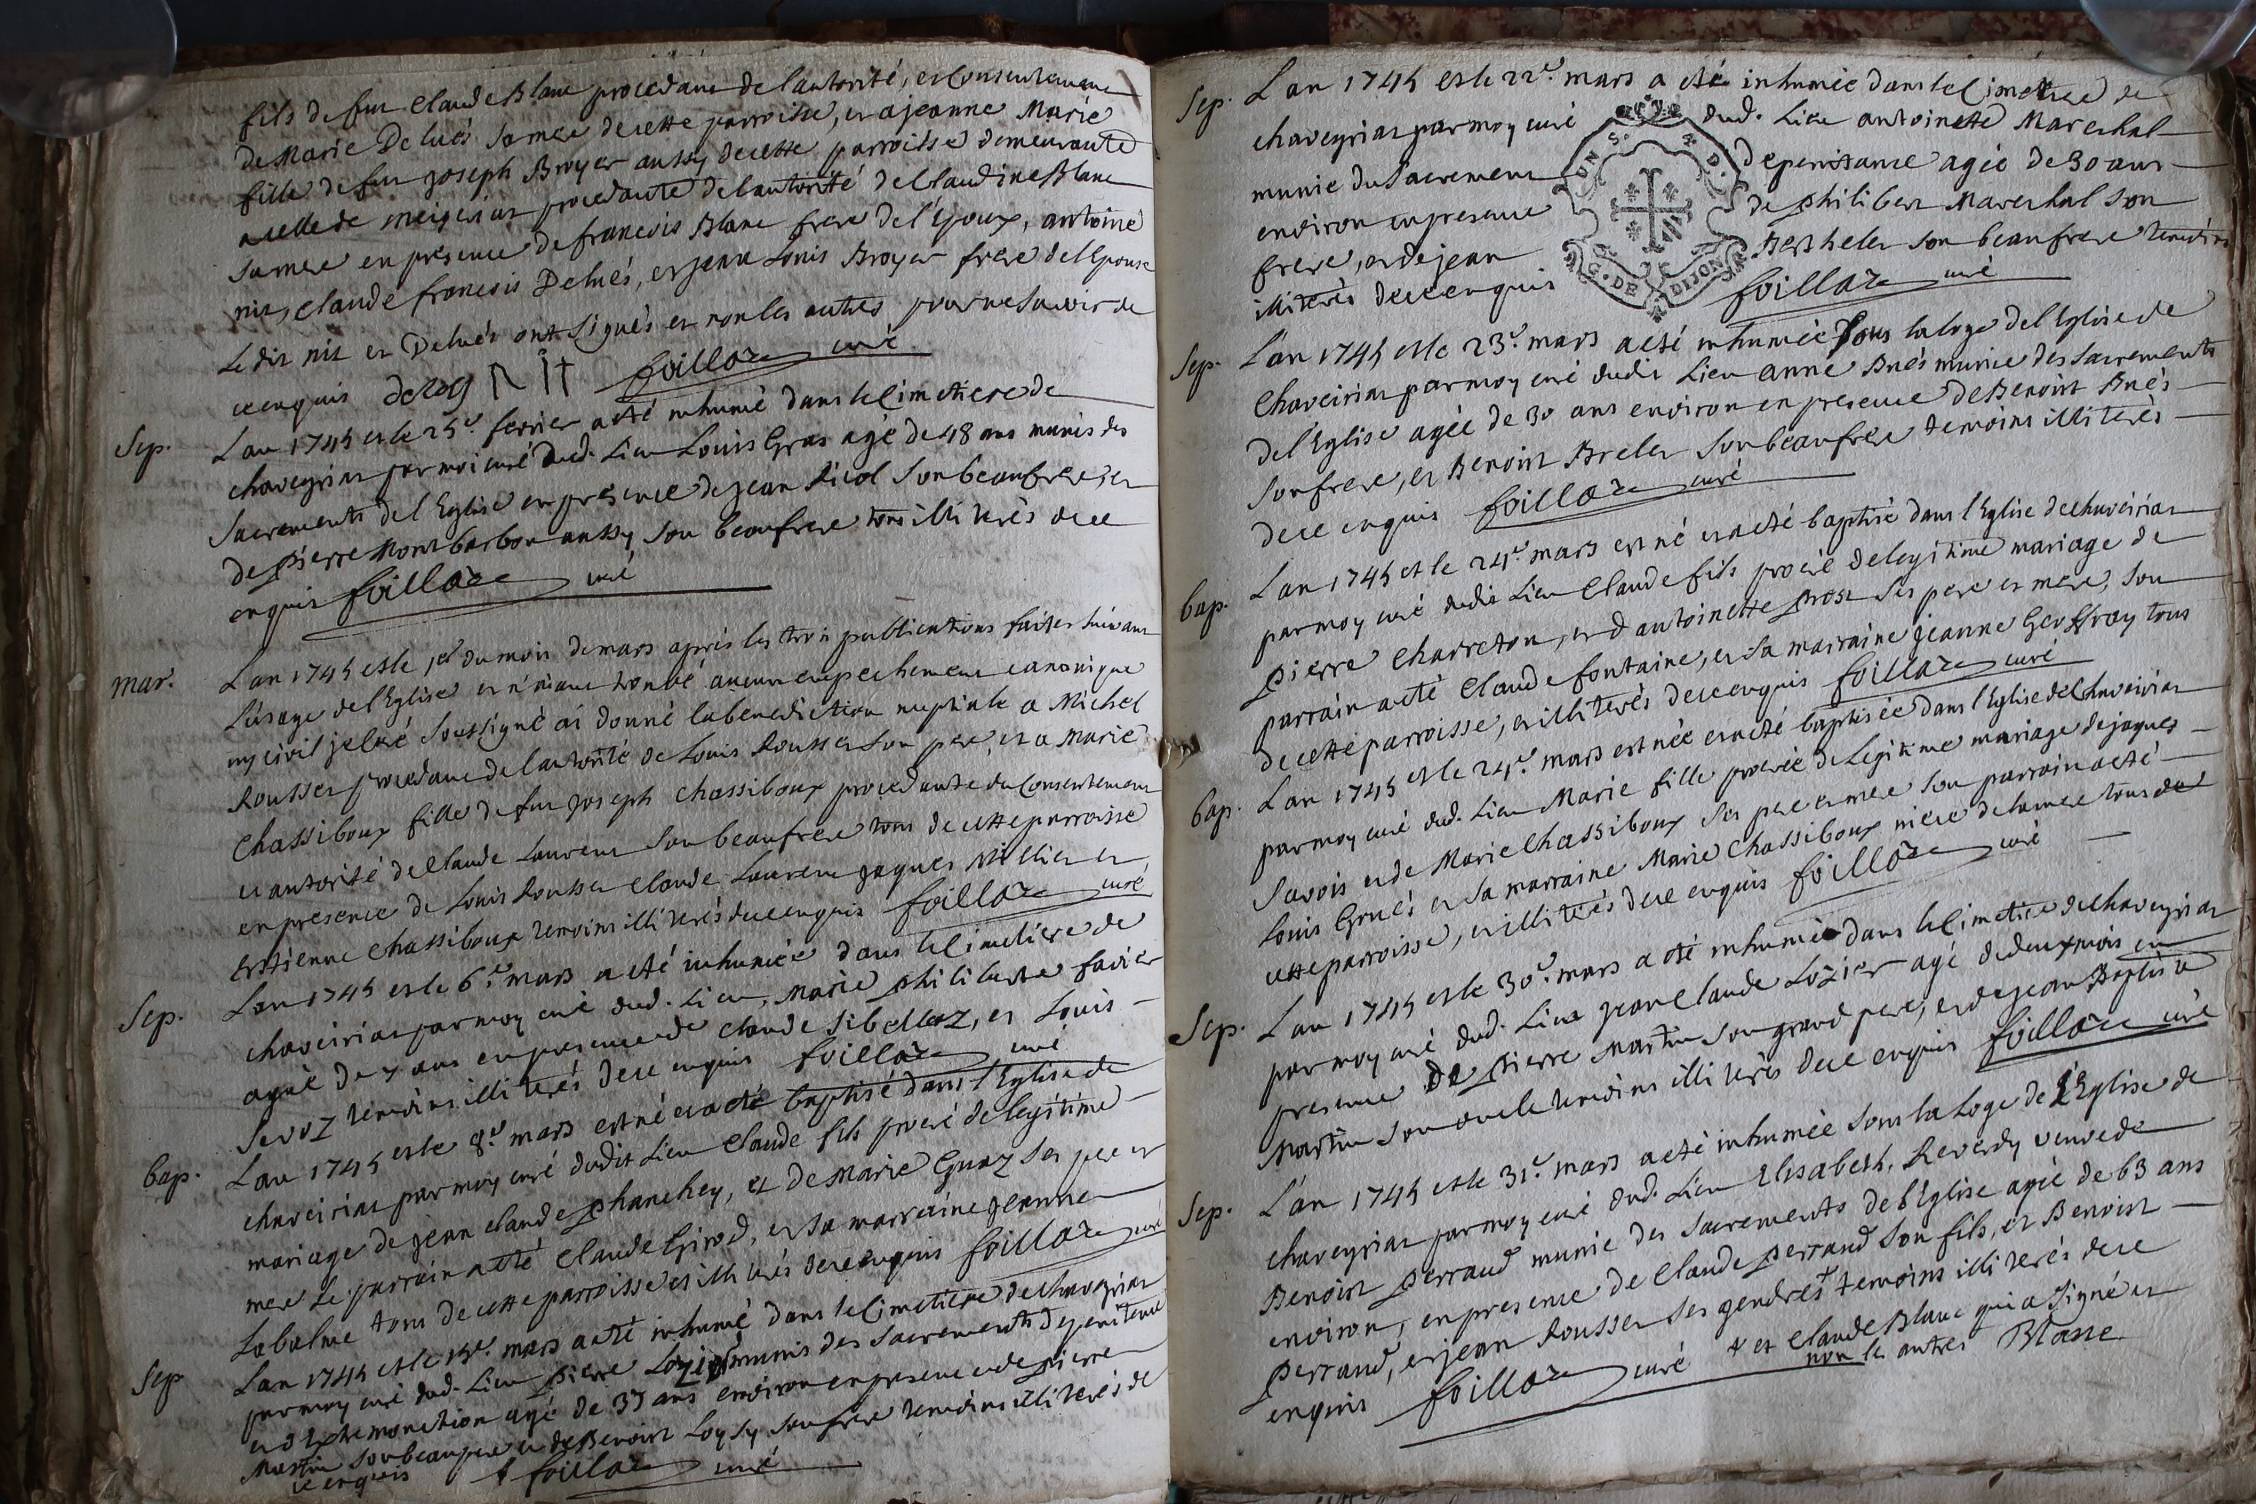 fils de feu Claude Blanc procedant de l'autorité, et Consentement
de Marie Deluës sa mere de cette parroisse, et a jeanne Marie
fille de feu joseph Broyer aussy de cette parroisse demeurante
a celle de procedante de l'autorité de Claudine Blanc
sa mere en presence de francois Blanc frere de l'Epoux, antoine
nit, Claude francois Deluës, et jean Louis Broyer frere de l'Epouse
Le dit nit et Deluës ont signés et non les autres pour ne savoir de
ce enquis foillare curé
Sep. L'an 1745 et le 25e fevrier a eté inhumé dans le Cimetiere de
chaveyriat par moi curé dud. Lieu Louis Gras agé de 48 ans munis des
sacrements de l'Eglise en presence de jean Picol son beaufrere, et
de pierre Montbarbon aussy son beaufrere tous illiterés de ce
enquis foillare curé
mar. L'an 1745 et le 1er du mois de mars après les trois publications faites suivant
l'usage de l'Eglise et n'etant trouvé aucun empechement canonique
ny civil je curé soussigné ai donné la benediction nuptiale a Michel
Rousset procedant de l'autorité de Louis Rousset son pere, et a Marie
Chassiboux fille de feu joseph Chassiboux procedante du Consentement
et autorité de Claude Laurent son beaufrere tous de cette parroisse
en presence de Louis Rousset Claude Laurent jaques Millier et
Estienne Chassiboux temoins illiterés de ce enquis foillare curé
Sep. L'an 1745 et le 6e mars a eté inhumée dans le Cimetiere de
chaveiriat par moy curé dud. Lieu, Marie philiberte favier
ageé de 7 ans en presence de Claude Sibellaz, et Louis
Sevoz temoins illiterés de ce enquis foillare curé
bap. L'an 1745 et le 8e mars est né et a eté baptisé dans l'Eglise de
chaveiriat par moy curé dudit Lieu Claude fils procré de legitime
mariage de jean claude phanchey, et de Marie Guaz ses pere et
mere Le parrain a eté Claude Girod, et sa marraine jeanne
Labalme tous de cette parroisse et illiterés de ce enquis foillare curé
Sep L'an 1745 et le 15e mars a eté inhumé dans le Cimetiere de chaveyriat
par moy curé dud. Lieu pierre munis des sacrements de penitence
et d'Extremonction agé de 35 ans environ en presence de pierre
Martin son beaupere et de Benoist Loysy son frere temoins illiterés de
ce enquis foillare curé
Sep. L'an 1745 et le 22e mars a eté inhumée dans le Cimetiere de
chaveyriat par moy curé dud. Lieu antoinette Marechal
munie du Sacrement de penitance agée de 30 ans
environ en presence de philibert Marechal son
frere, et de jean Berthelet son beaufrere temoins
illiterés de ce enquis foillare curé
G. DE DIJON
Sep. L'an 1745 et le 23e mars a eté inhumée sous la loge de l'Eglise de
Chaveiriat par moy curé dudit Lieu anne Bués munie des sacrements
de l'Eglise agée de 30 ans environ en presence de Benoist Bués
son frere, et Benoist Brelet son beaufrere temoins illiterés
de ce enquis foillare curé
bap. L'an 1745 et le 24e mars est né et a eté baptisé dans l'Eglise de chaveiriat
par moy curé dudit Lieu Claude fils procré de legitime mariage de
pierre Charreton, et d'antoinette prost ses pere et mere, son
parrain a eté Claude fontaine, et sa marraine jeanne Geoffray tous
de cette parroisse, et illiterés de ce enquis foillare curé
bap. L'an 1745 et le 24e mars est née et a eté baptisée dans l'Eglise de Chaveiriat
par moy curé dud. Lieu Marie fille procréé de Legitime mariage de jaques
Savois et de Marie Chassiboux ses pere et mere son parrain a eté
Louis Grués et sa marraine Marie Chassiboux niece de la mere tous de
cette parroisse, et illiterés de ce enquis foillare curé
Sep. L'an 1745 et le 30e mars a eté inhumé dans le Cimetiere de chaveyriat
par moy curé dud. Lieu jean Claude Lozier agé de deux mois en
presence de pierre Martin son grand pere, et de jean Baptiste
Martin son oncle temoins illiterés de ce enquis foillare curé
Sep. L'an 1745 et le 31e mars a eté inhumée sous la Loge de l'Eglise de
chaveyriat par moy curé dud. Lieu Elisabeth, Reverdy veuve de
Benoist perraud munie des sacrements de l'Eglise agée de 63 ans
environ, en presence de Claude perraud son fils, et Benoist
perraud, et jean Rousset ses gendres + temoins illiterés de ce
enquis foillare curé + et Claude Blanc qui a signé et
non les autres Blanc